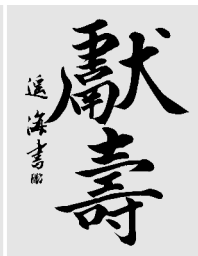 獻壽
遥海書